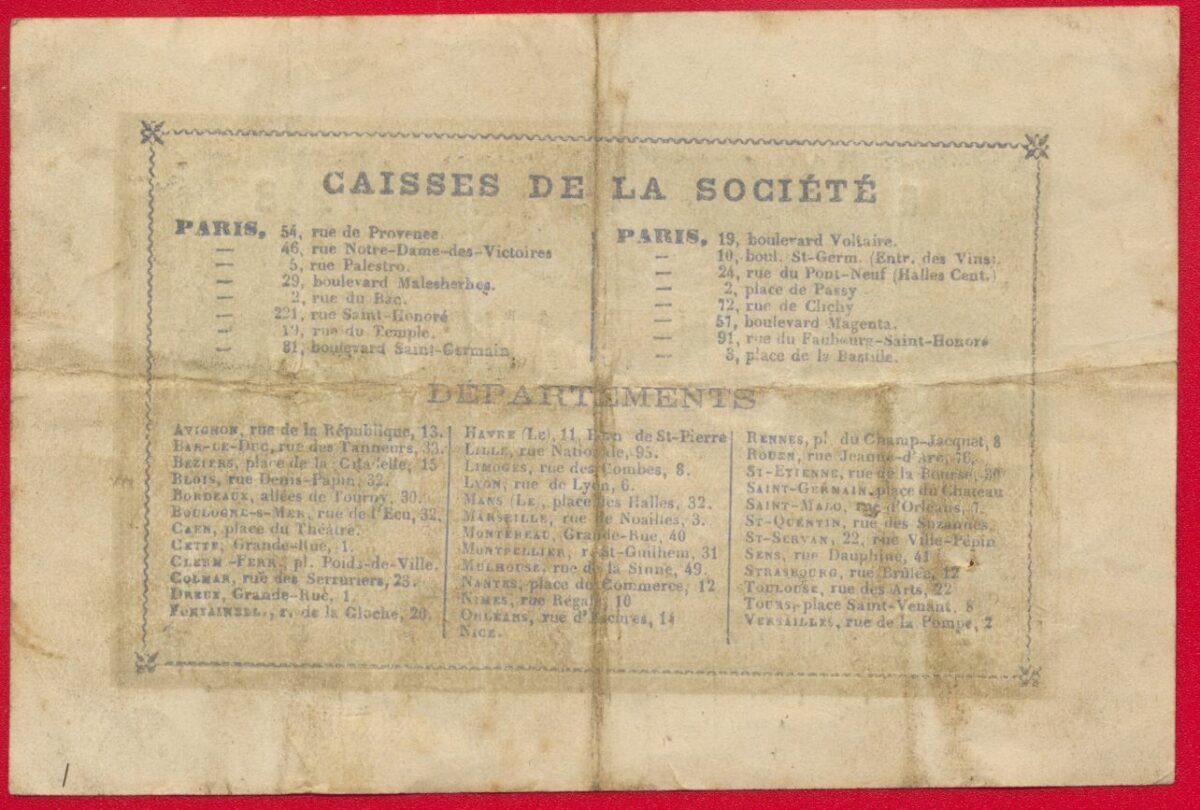 CAISSES DE LA SOCIÉTÉ
PARIS, 54, rue de Provence.
— 46, rue Notre-Dame-des-Victoires
— 5, rue Palestro.
— 29, boulevard Malesherbes.
— 2, rue du Bac.
— 221, rue Saint-Honoré
— 19, rue du Temple.
— 81, boulevard Saint-Germain,
PARIS, 19, boulevard Voltaire.
— 10, boul. St-Germ. (Entr. des Vins).
— 24, rue du Pont-Neuf (Halles Cent.)
— 2, place de Passy
— 72, rue de Clichy
— 57, boulevard Magenta.
— 91, rue du Faubourg-Saint-Honoré
— 3, place de la Bastille.
DÉPARTEMENTS
AVIGNON, rue de la République, 13.
BAR-LE-DUC, rue des Tanneurs, 33.
BEZIERS, place de la Citadelle, 15
BLOIS, rue Denis-Papin, 32.
BORDEAUX, allées de Tourny, 30.
BOULOGNE-S-MER, rue de l'Ecu, 32.
CAEN, place du Théâtre.
CETTE, Grande-Rue, 1.
CLERM-FERR, pl. Poids-de-Ville.
COLMAR, rue des Serruriers, 23.
DREUX, Grande-Rue, 1.
FONTAINEBL., r. de la Cloche, 20.
HAVRE (LE), 11, de St-Pierre
LILLE, rue Nationale, 95.
LIMOGES, rue des Combes, 8.
LYON, rue de Lyon, 6.
MANS (LE), place des Halles, 32.
MARSEILLE, rue de Noailles, 3.
MONTEREAU, Grande-Rue, 40
MONTPELLIER, r. St-Guilhem, 31
MULHOUSE, rue de la Sinne, 49.
NANTES, place du Commerce, 12
NIMES, rue Régale, 10
ORLÉANS, rue d'Escures, 14
NICE.
RENNES, pl. du Champ-Jacquet, 8
ROUEN, rue Jeanne-d'Arc, 76.
ST-ETIENNE, rue de la Bourse, 30
SAINT-GERMAIN, place du Chateau
SAINT-MALO, rue d'Orléans, 7.
ST-QUENTIN, rue des Suzannes.
ST-SERVAN, 22, rue Ville-Pépin
SENS, rue Dauphine, 41
STRASBOURG, rue Brûlée, 12
TOULOUSE, rue des Arts, 22
TOURS, place Saint-Venant, 8
VERSAILLES, rue de la Pompe, 2
1